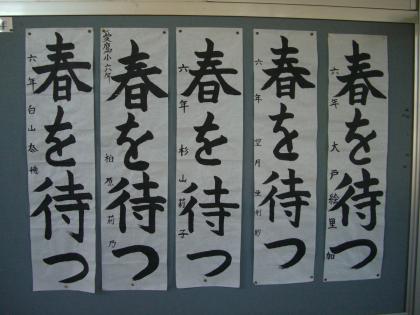 春を待つ
六年 大戸綾里加
春を待つ
六年 望月亜利紗
春を待つ
六年 杉山莉子
春を待つ
愛鷹小六年 柏原莉乃
春を待つ
六年 白山